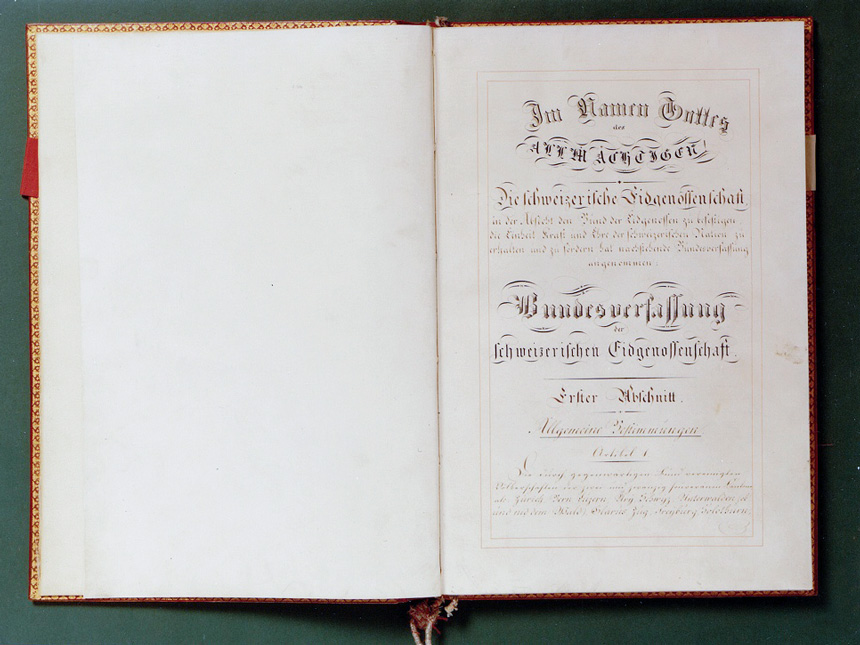 Im Namen Gottes
des
ALLMÆCHTIGEN!
Die schweizerische Eidgenossenschaft,
in der Absicht den Bund der Eidgenossen zu befestigen
die Einheit Kraft und Ehre der schweizerischen Nation zu
erhalten und zu fördern hat nachstehende Bundesverfassung
angenommen:
Bundesverfassung
der
schweizerischen Eidgenossenschaft.
Erster Abschnitt.
Allgemeine Bestimmungen
Artikel 1
Die durch gegenwärtigen Bund vereinigten
Völkerschaften der zwei und zwanzig souveränen Kantone
als Zürich Bern Luzern Ury Schwyz Unterwalden, ob
und nid dem Wald, Glarus Zug Freyburg Solothurn,